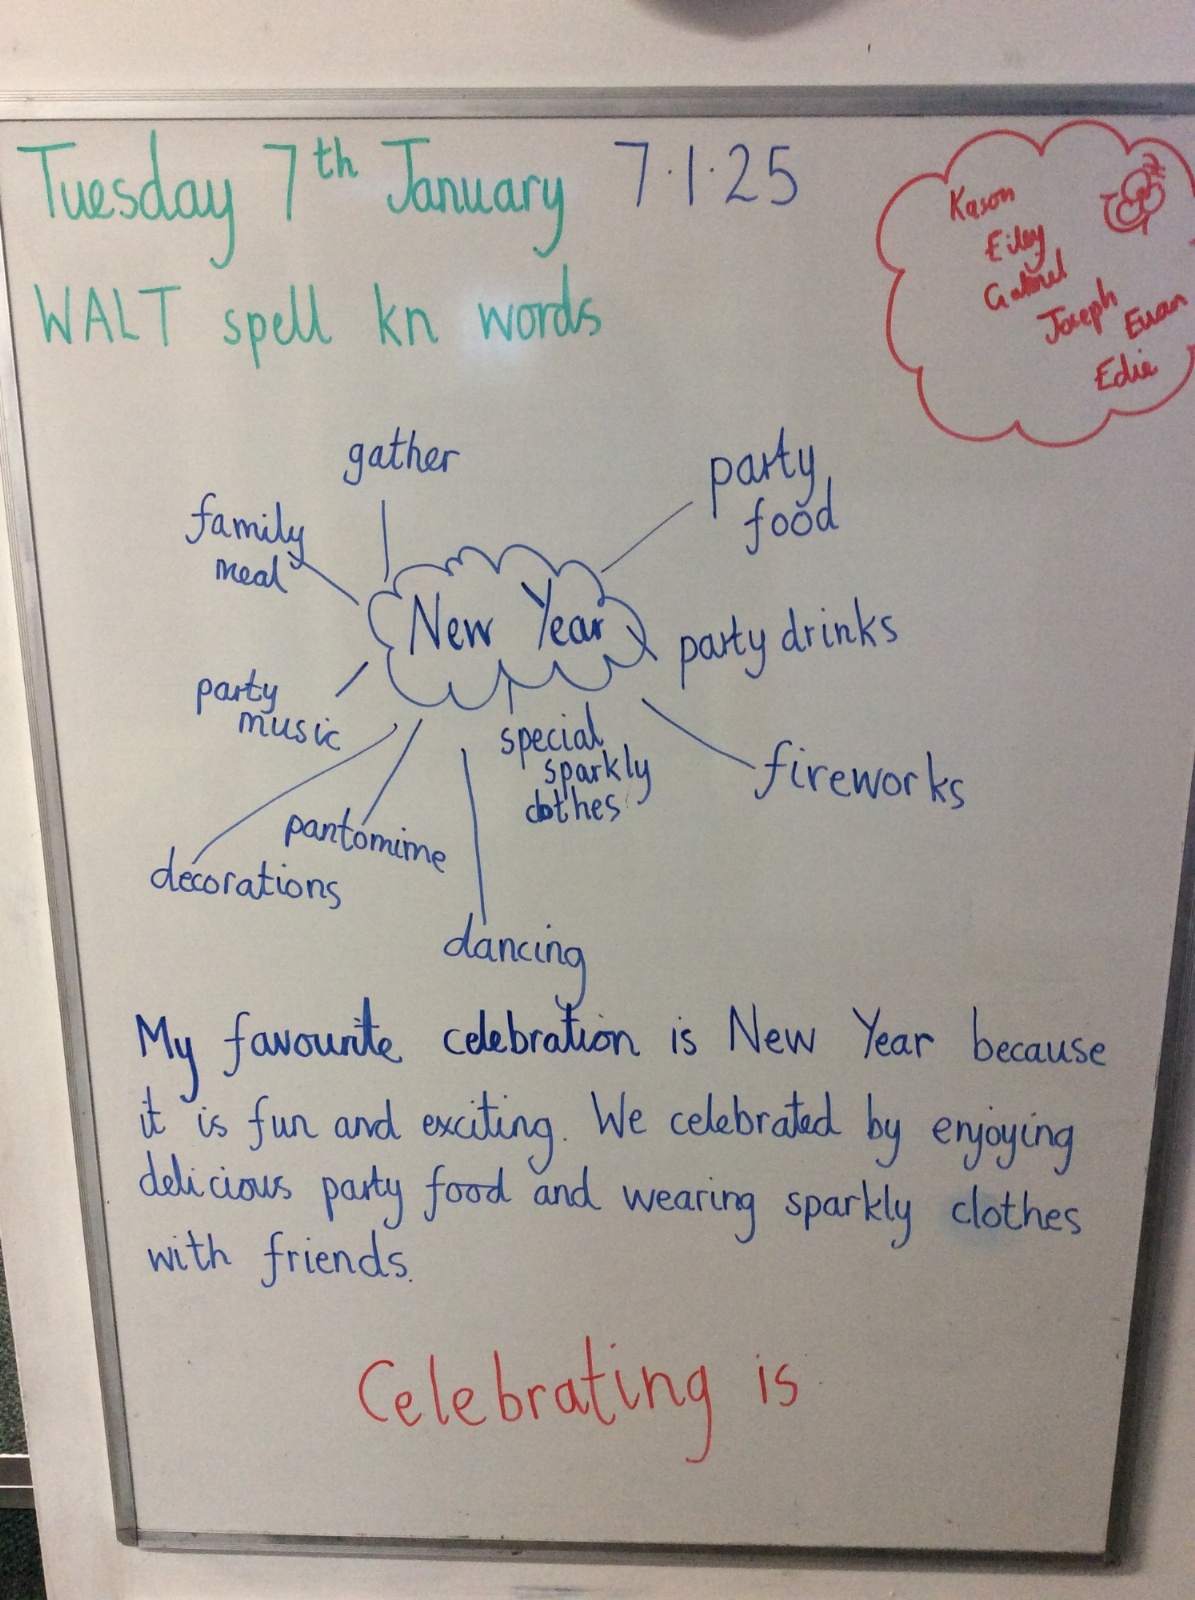 Tuesday 7th January 7.1.25
WALT spell kn words
Kason
Eiley
Gabriel
Joseph
Euan
Edie
gather
party
food
family
meal
New Year
party drinks
party
music
special
sparkly
clothes
fireworks
pantomime
decorations
dancing
My favourite celebration is New Year because
it is fun and exciting. We celebrated by enjoying
delicious party food and wearing sparkly clothes
with friends.
Celebrating is